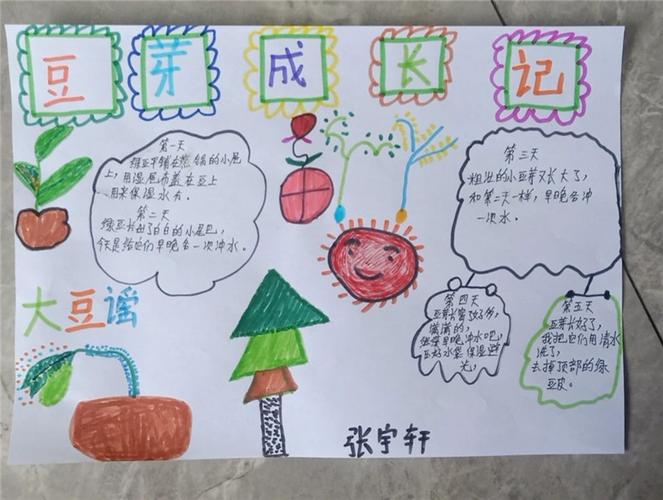 豆芽成长记
第一天
绿豆平铺在
的小尾
上，用湿尾布盖在豆上
用来保湿水分。
第二天
绿豆长出了白白的小尾巴，
今天是给它们早晚各一次冲水。
第三天
粗壮的小豆芽又长大了，
和第二天一样，早晚各冲
一次水。
大豆谣
第四天
豆芽长
满满的，
继续早晚冲水吧，
保湿避
光，
第五天
豆芽长好了，
我把它们用清水
洗了，
去掉顶部的绿
豆皮。
张宇轩